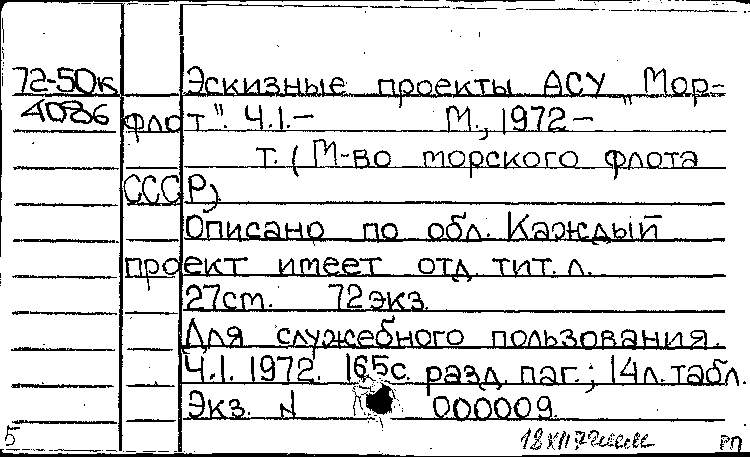 72-50к Эскизные проекты АСУ „Мор-
4086 флот". Ч.1.— М., 1972—
т. (М-во морского флота
СССР)
Описано по обл. Каждый
проект имеет отд. тит. л.
27см. 72экз.
Для служебного пользования.
Ч.1. 1972. 165с. разд. паг.; 14л. табл.
Экз. N 000009.
5 РП